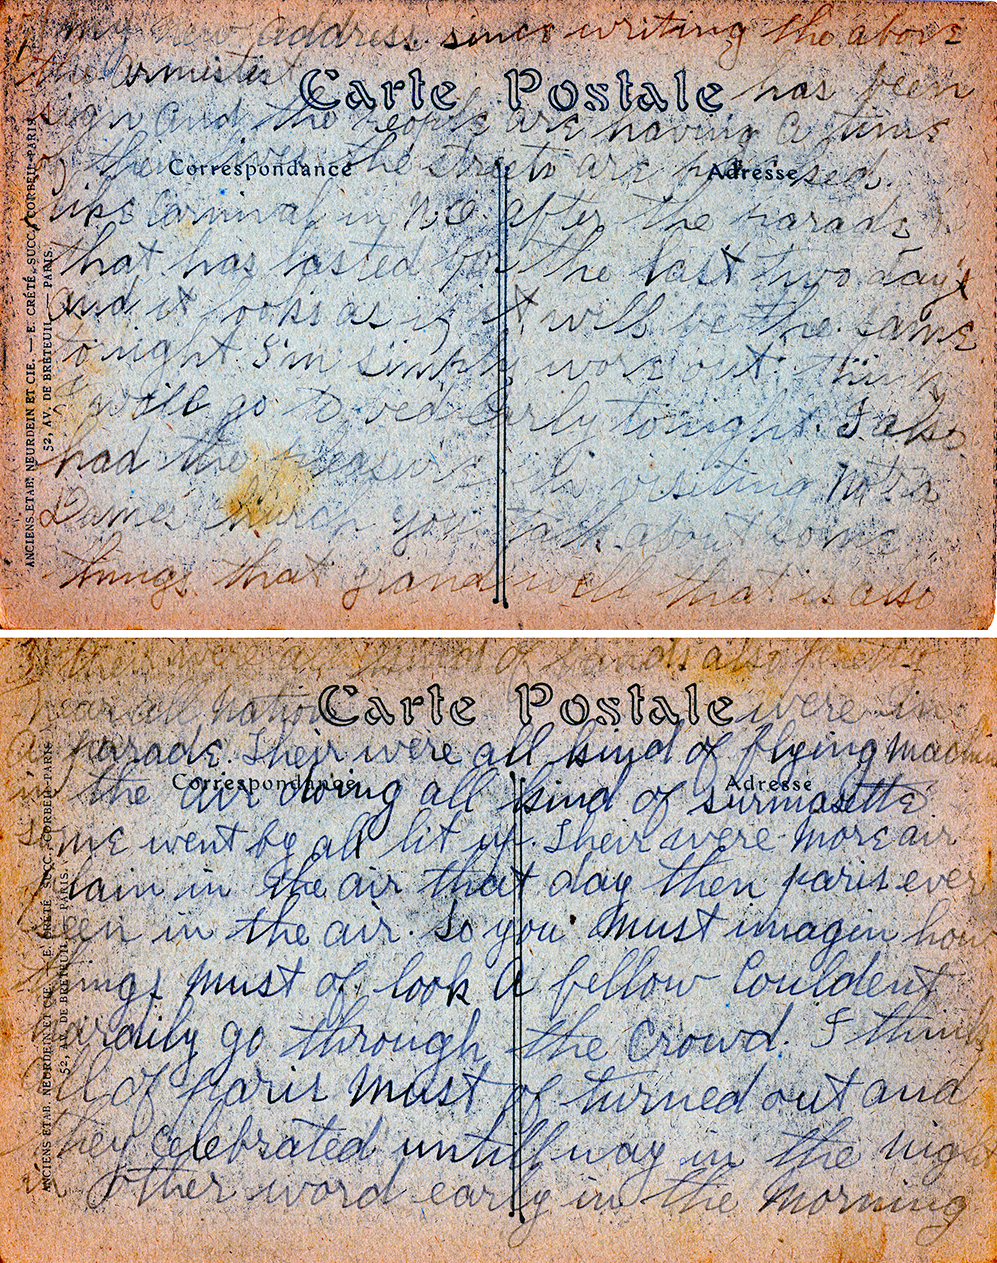 my new address. since writing the above
the armistist
Carte Postale
has been
sign and the people are having a time
Correspondance
Adresse
of their lives the streets are packed.
like Carnival in N.O. after the parade
that has lasted for the last two day's
and it looks as if it will be the same
to night I'm simply wore out. think
I will go to bed early tonight. I also
had the pleasure in visiting Notra
Dames church you talk about some
things that grand well that is also
ANCIENS ETAB. NEURDEIN ET CIE. — E. CRÉTÉ, SUCC. CORBEIL-PARIS
52, AV. DE BRETEUIL — PARIS.
their were a of bands also pretty
near all nation
Carte Postale
were in
a parade. Their were all kind of flying machin
Correspondance
Adresse
in the air doing all kind of surmasette
some went by all lit up. Their were more air
plain in the air that day then paris ever
seen in the air. So you must imagin how
things must of look a fellow Couldent
hardily go through the Crowd. I think
all of paris must of turned out and
they celebrated untill way in the night
in other word early in the morning
ANCIENS ETAB. NEURDEIN ET CIE. — E. CRÉTÉ, SUCC. CORBEIL-PARIS
52, AV. DE BRETEUIL — PARIS.